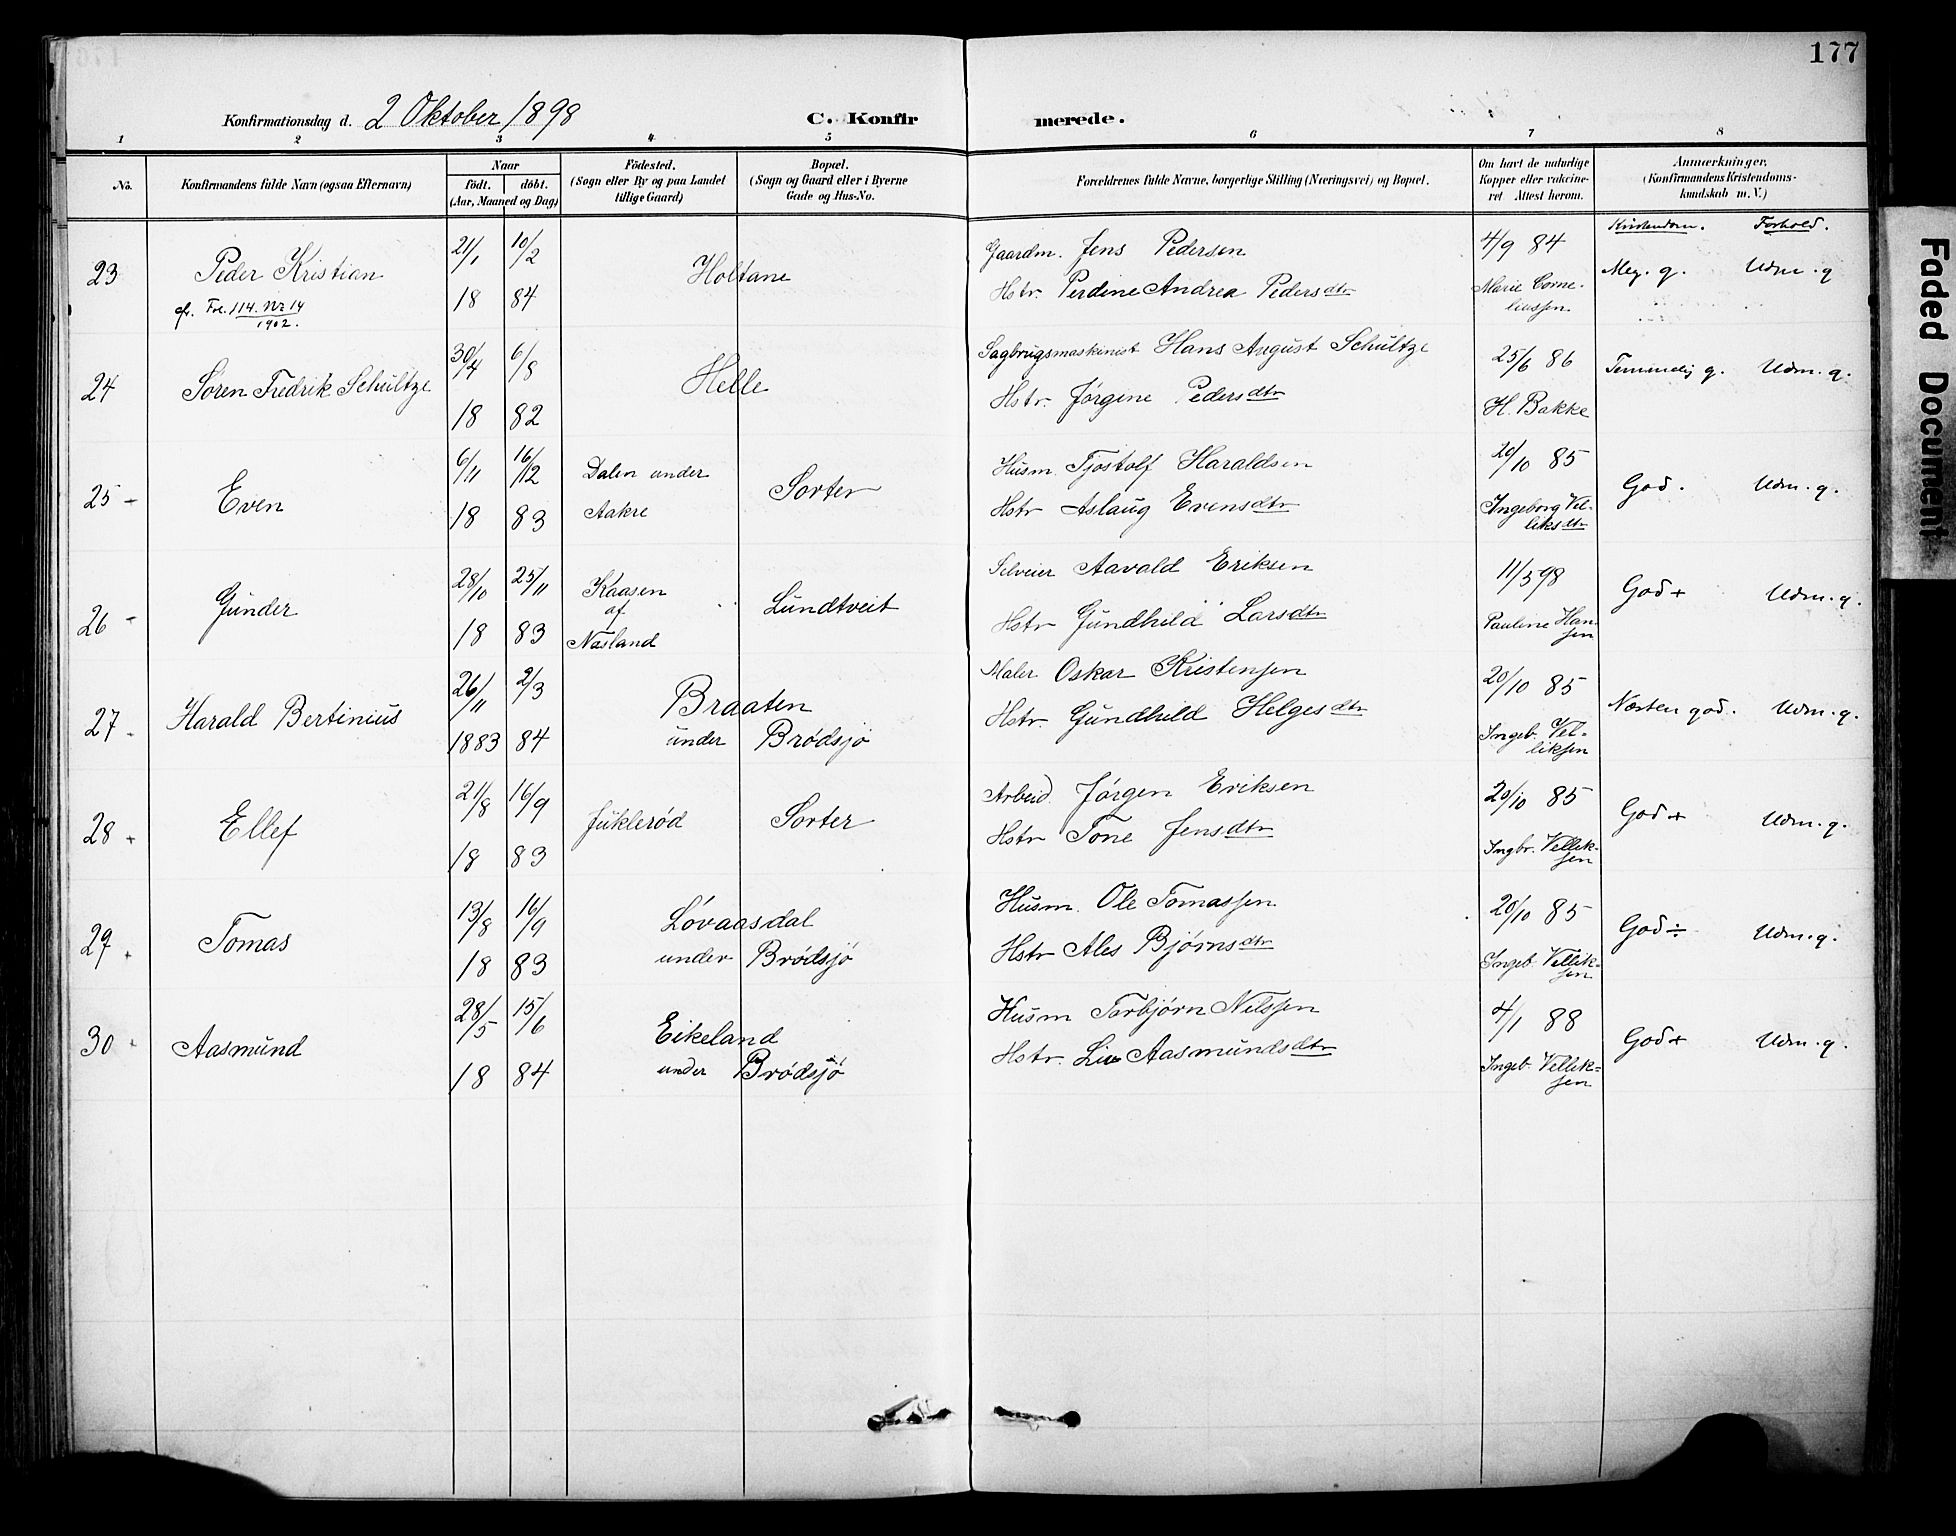 177
Konfirmationsdag d. 2 Oktober 1898 C. Konfirmerede.
1 2 3 4 5 6 7 8
No.
Konfirmandens fulde Navn (ogsaa Efternavn)
Naar
födt. döbt.
(Aar, Maaned og Dag)
Födested.
(Sogn eller By og paa Landet
tillige Gaard)
Bopæl.
(Sogn og Gaard eller i Byerne
Gade og Hus-No.
Forældrenes fulde Navne, borgerlige Stilling (Næringsvei) og Bopæl.
Om havt de naturlige
Kopper eller vakcine-
ret Attest herom.
Anmærkninger.
(Konfirmandens Kristendoms-
kundskab m. V.)
Kristendom. Forhold.
23 Peder Kristian 21/1 10/2 Holtane Gaardm. Jens Pedersen 4/9 84 Meg. g. Udm. g
cfr. Fol. 114. Nr 14 18 84 Hstr. Perdine Andrea Pedersdtr Marie Corne-
1902. liussen
24 Søren Fredrik Schültze 30/4 6/8 Helle Sagbrugsmaskinist Hans August Schültze 25/6 86 Temmelig g. Udm. g.
18 82 Hstr. Jørgine Pedersdtr H. Bakke
25 - Even 6/11 16/12 Dalen under Sorter Husm. Tjostolf Haraldsen 20/10 85 God. Udm. g.
18 83 Aakre Hstr Aslaug Evensdtr Ingeborg Vel-
leksdtr
26 - Günder 28/10 25/11 Kaasen Lundtveit Selveier Aavald Eriksen 11/5 98 God + Udm. g.
af
18 83 Nasland Hstr Gündhild Larsdtr Pauline Han-
sen
27 - Harald Bertinius 26/11 2/3 Braaten Maler Oskar Kristensen 20/10 85 Næsten god. Udm. g.
1883 84 under Brødsjø Hstr. Gündhild Helgesdtr Ingeb. Vel-
leksen
28 + Ellef 21/8 16/9 Juklerød Sorter Arbeid. Jørgen Eriksen 20/10 85 God + Udm. g.
18 83 Hstr Tone Jensdtr Ingbr. Vellek-
sen
29 + Tomas 13/8 16/9 Løvaasdal Husm. Ole Tomassen 20/10 85 God ÷ Udm. g.
18 83 under Brødsjø Hstr Ales Bjørnsdtr Ingeb. Vellek-
sen
30 Aasmund 28/5 15/6 Eikeland Husm Torbjørn Nilssen 4/1 88 God + Udm. g.
18 84 under Brødsjø Hstr. Liv Aasmundsdtr Ingeb. Vellek-
sen
Faded Document